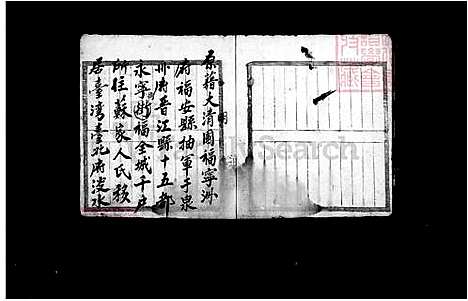 原籍大清國福寧州
府福安縣抽軍于泉
州府晋江縣十五都
永寧衛福全城千户
所住蘇家人氏移
居臺湾臺北府淡水